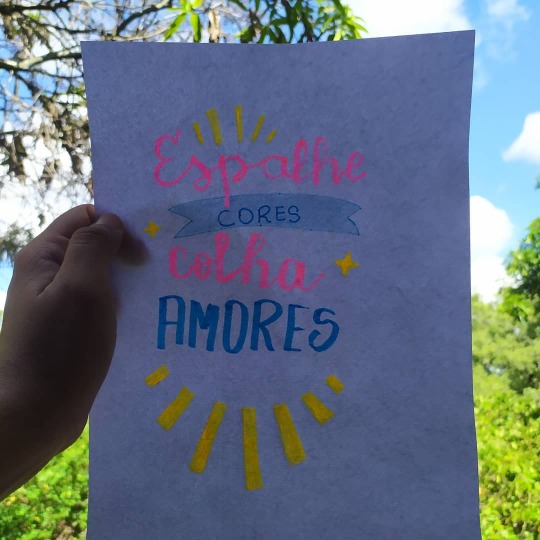 Espalhe
CORES
colha
AMORES